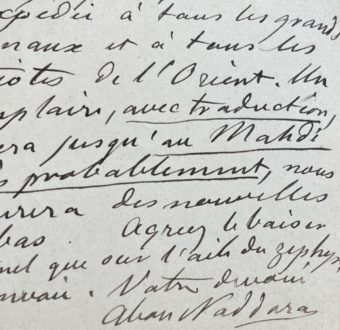 xpédié à tous les grands
rnaux et à tous les
riotes de l'Orient. Un
mplaire, avec traduction,
era jusqu'au Mahdi
s probablement, nous
urera des nouvelles
bas. Agréez le baiser
nel que sur l'aile du zéphyr
envoie. Votre dévoué
Abou Naddara